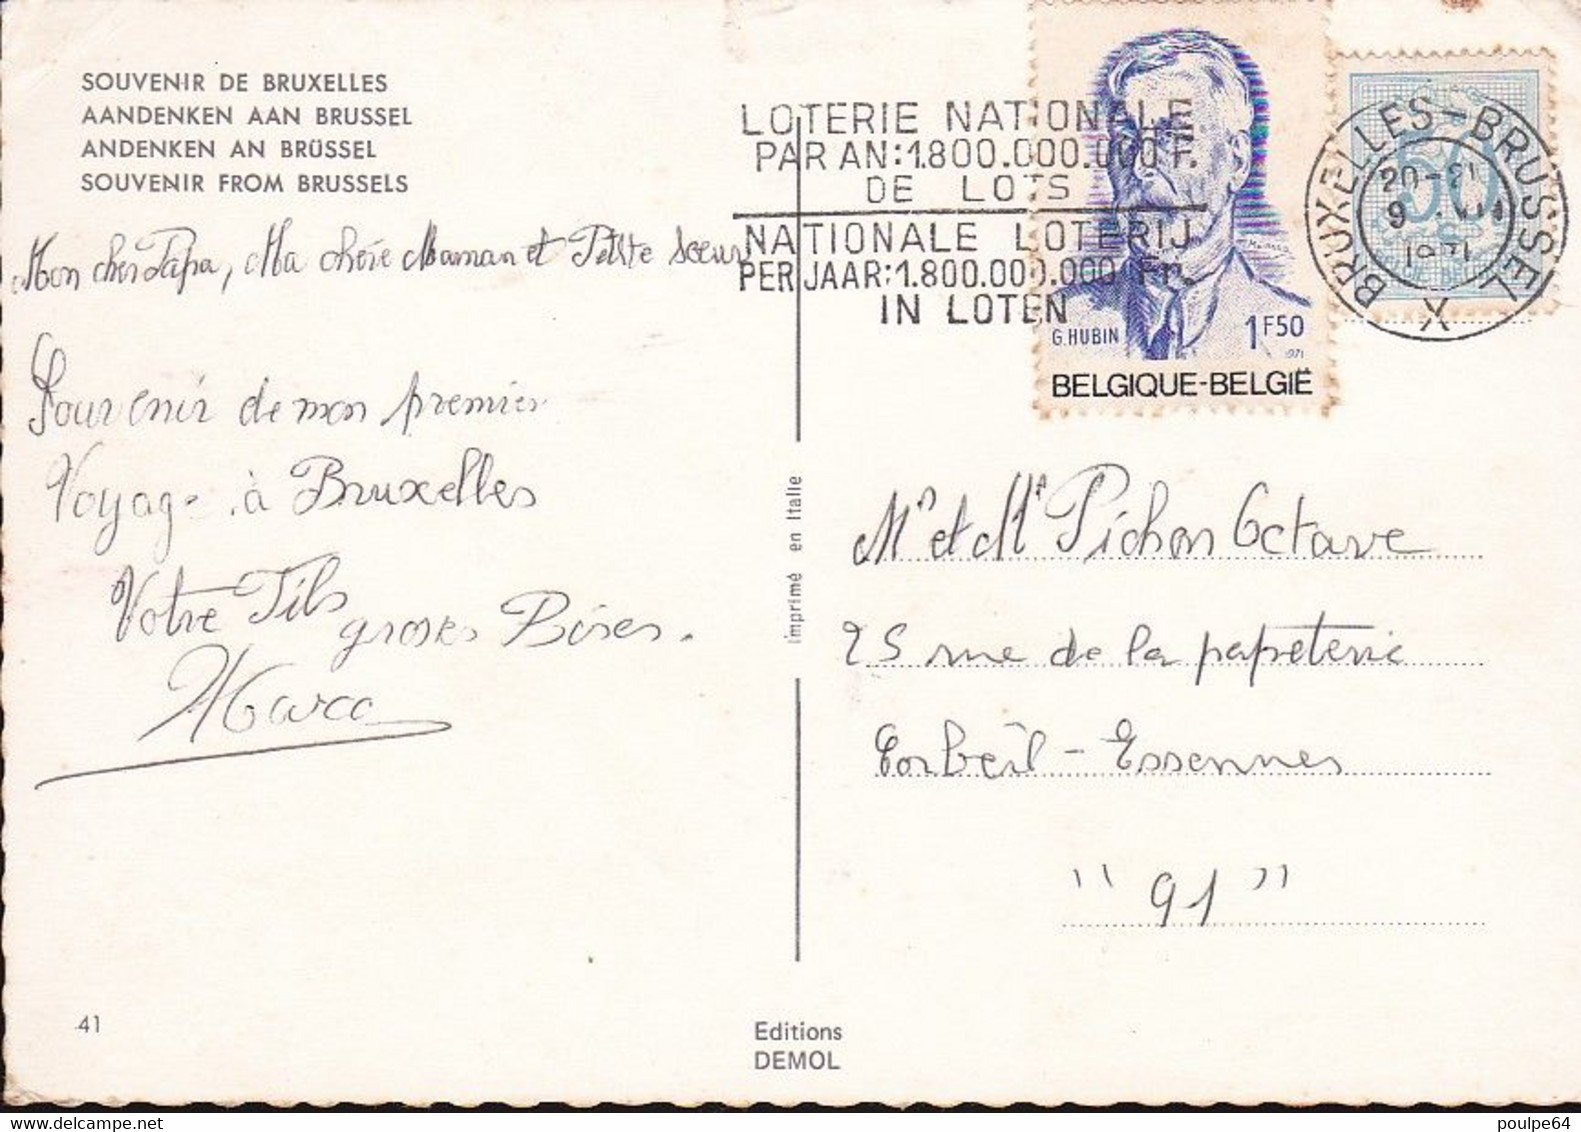 SOUVENIR DE BRUXELLES
AANDENKEN AAN BRUSSEL
ANDENKEN AN BRÜSSEL
SOUVENIR FROM BRUSSELS
Mon cher Papa, Ma chère Maman et Petite Soeur
Souvenir de mon premier
Voyage à Bruxelles
Votre Fils
groses Bises.
Marco
41
LOTERIE NATIONALE
PAR AN: 1.800.000.000 F.
DE LOTS
NATIONALE LOTERIJ
PER JAAR: 1.800.000.000 Fr.
IN LOTEN
G.HUBIN 1F50
1971
BELGIQUE-BELGIË
50
BRUXELLES-BRUSSEL
20-21
9 VIII
1971
X
imprimé en Italie
Mr et Me Pichon Octave
25 rue de la papeterie
Corbeil - Essonnes
"91"
Editions
DEMOL
poulpe64